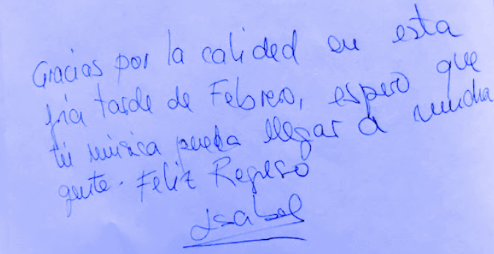 Gracias por la calided en esta
fría tarde de Febrero, espero que
tú música pueda llegar a mucha
gente. Feliz Regreso
Isabel